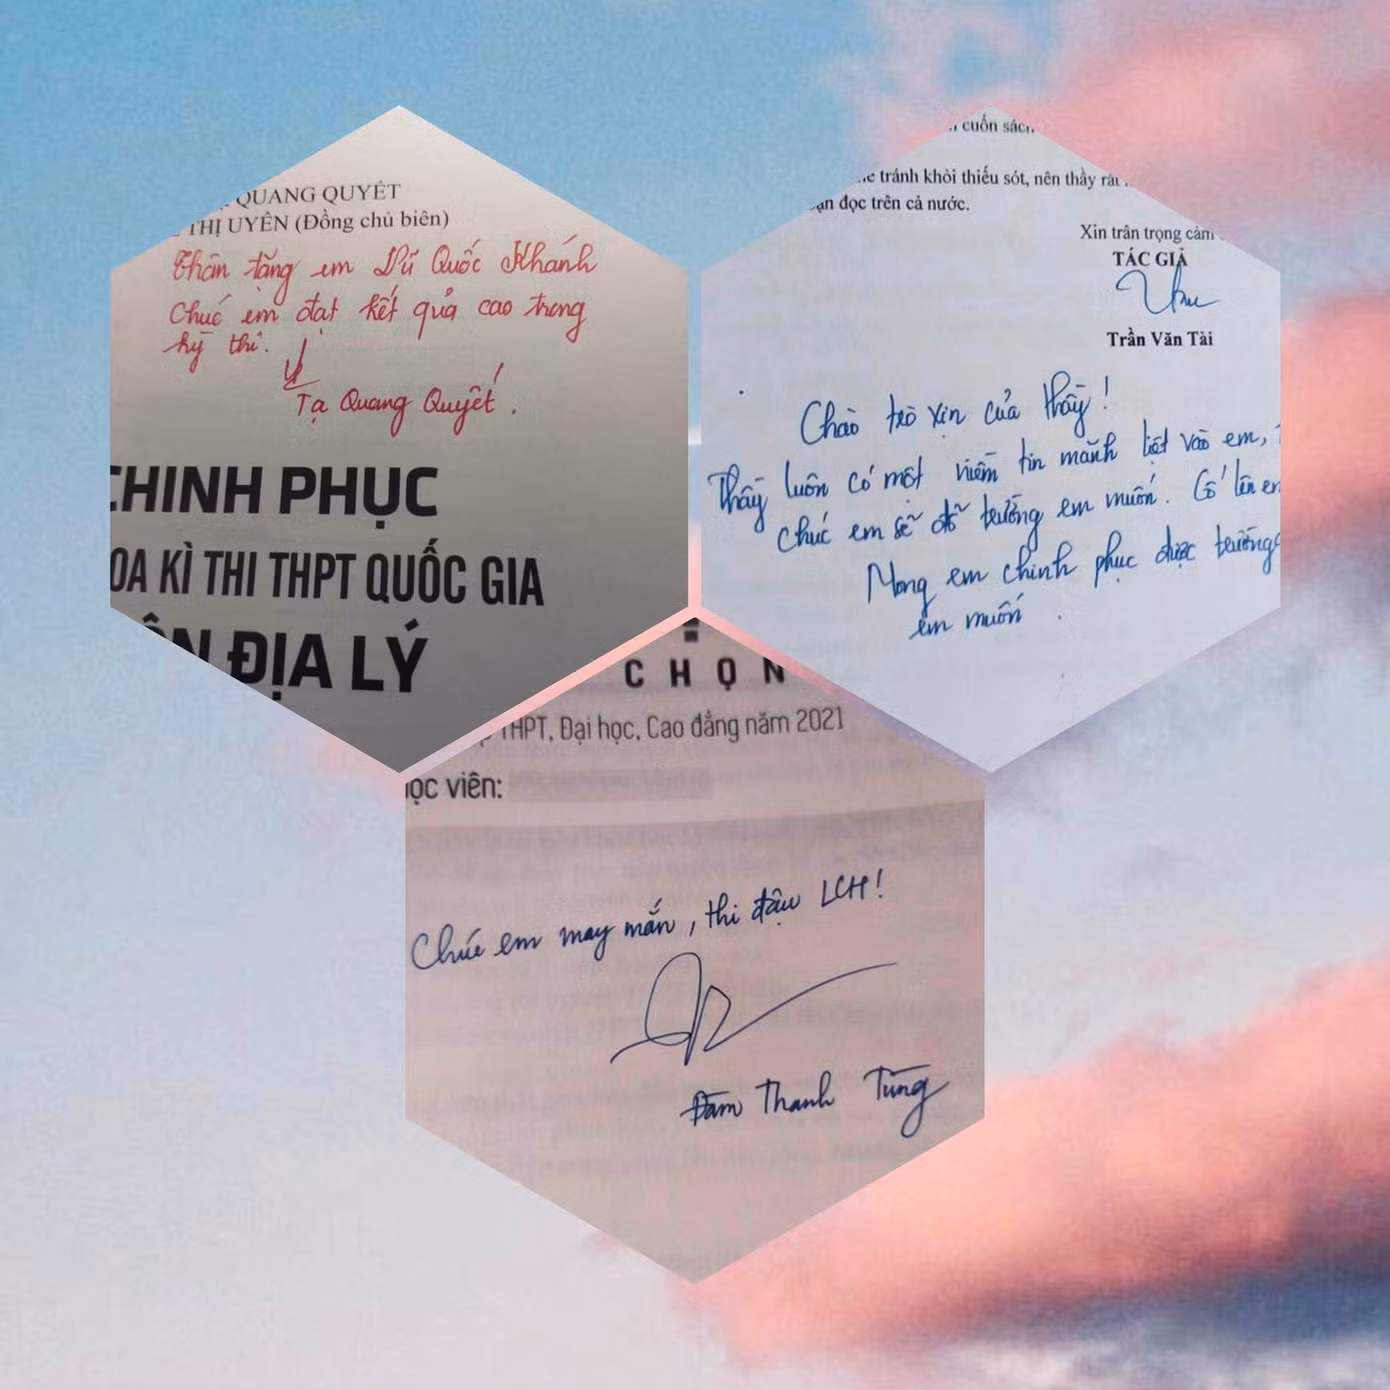 QUANG QUYẾT
THỊ UYÊN (Đồng chủ biên)
Thân tặng em Lữ Quốc Khánh
Chúc em đạt kết quả cao trong
kỳ thi.
Tạ Quang Quyết.
CHINH PHỤC
KÌ THI THPT QUỐC GIA
ĐỊA LÝ
cuốn sách
tránh khỏi thiếu sót, nên thầy rất
đọc trên cả nước.
Xin trân trọng cảm
TÁC GIẢ
Trần Văn Tài
Chào trò xịn của thầy!
Thầy luôn có một niềm tin mãnh liệt vào em,
chúc em sẽ đỗ trường em muốn. Cố lên em
Mong em chinh phục được trường
em muốn.
CHỌN
THPT, Đại học, Cao đẳng năm 2021
học viên:
Chúc em may mắn, thi đậu LCH!
Đàm Thanh Tùng